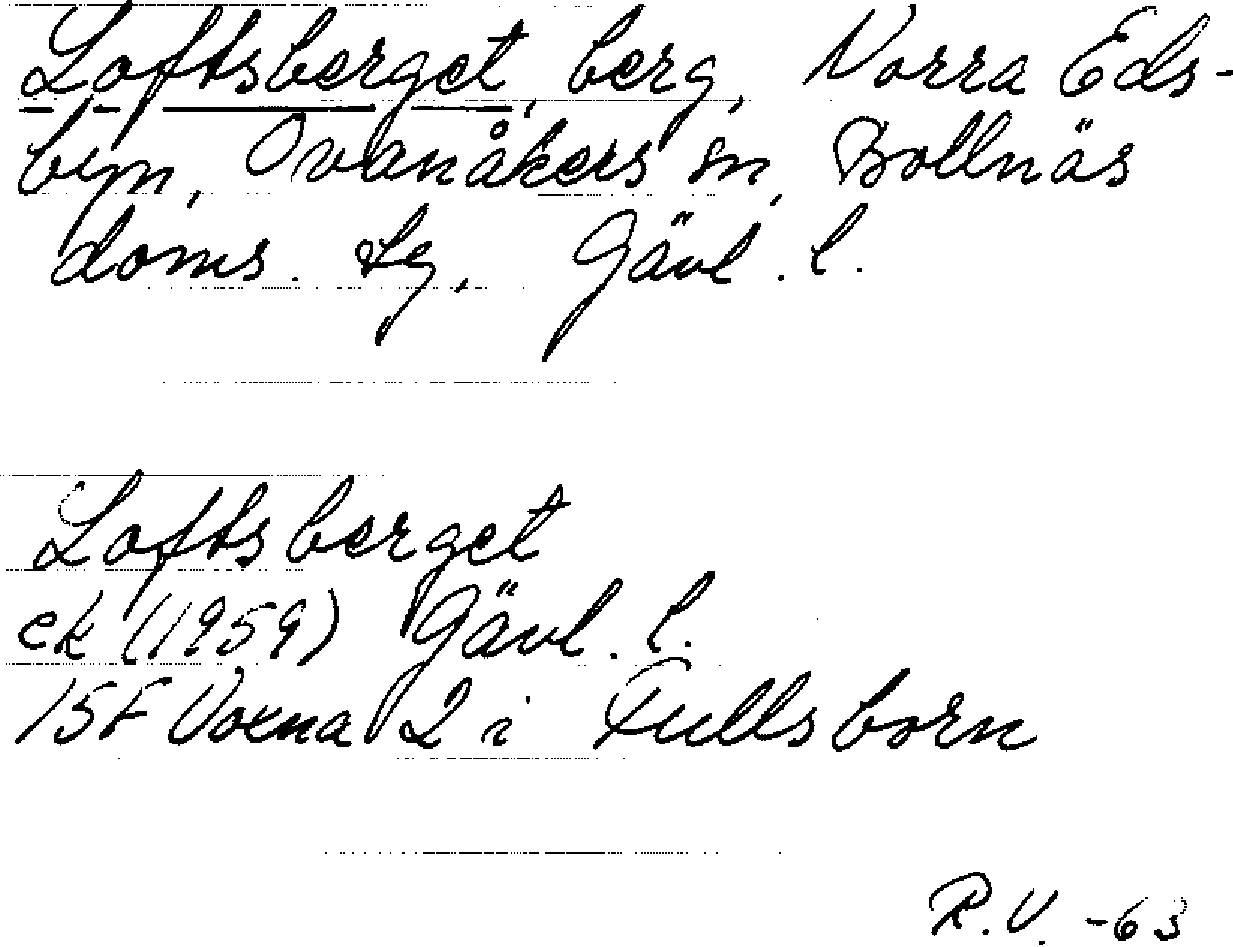 Loftsberget, berg, Norra Eds-
byn, Ovanåkers sn, Bollnäs
doms. tg, Gävl. l.
Loftsberget
ek (1959) Gävl. l.
15F Voxna 2 i Fullsborn
R.V. -63